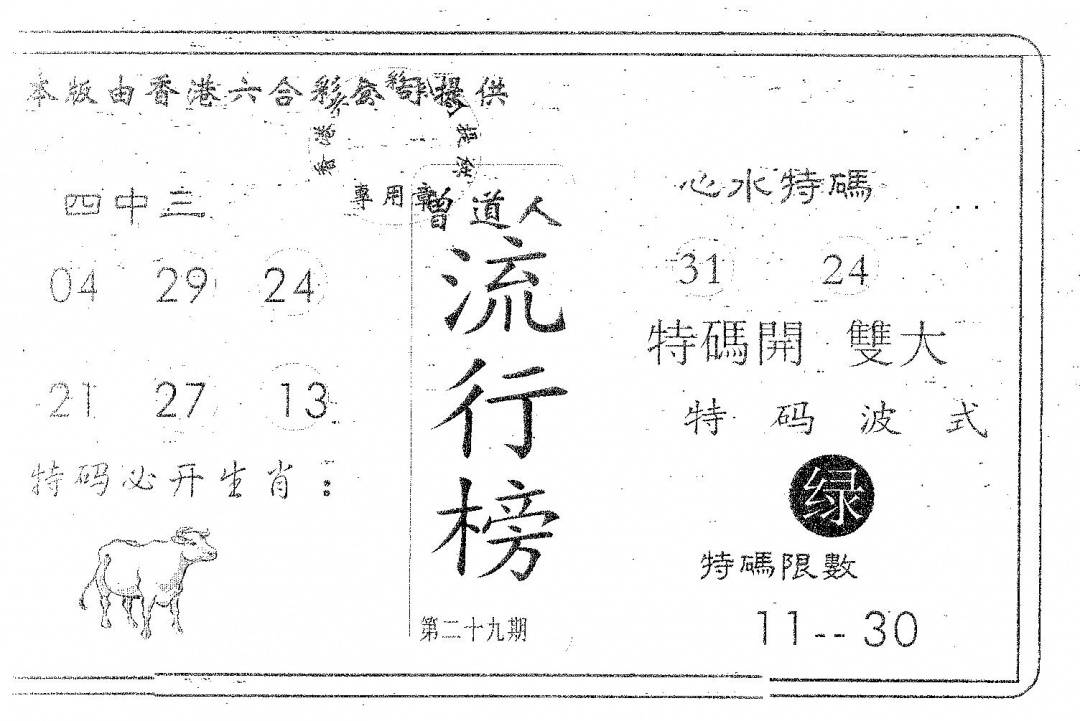 本版由香港六合彩公司提供
專用章
四中三
04 29 24
21 27 13
特码必开生肖：
曾道人
流行榜
第二十九期
心水特碼
31 24
特碼開 雙大
特码波式
绿
特碼限數
11--30